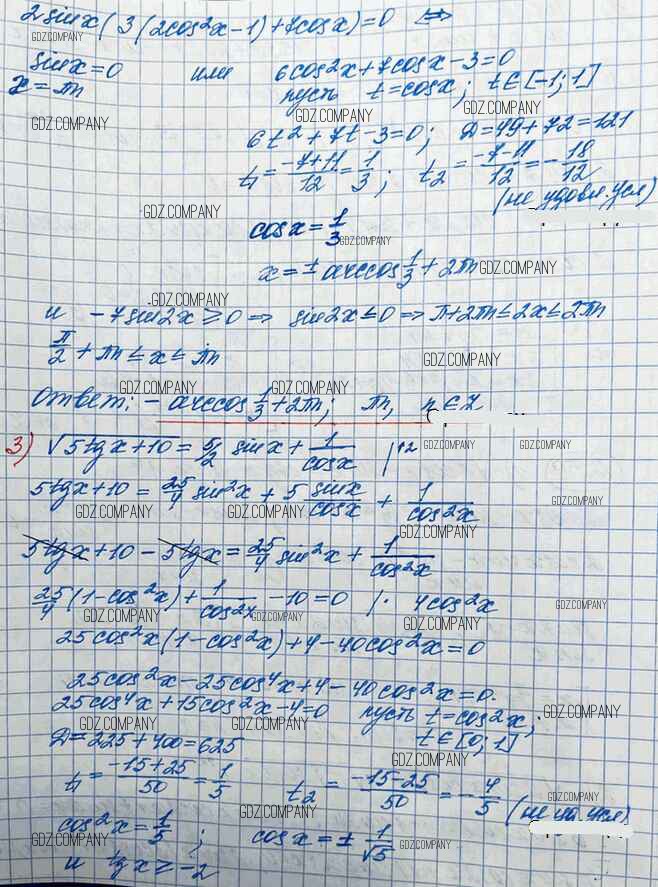 2sinx(3(2cos²x-1)+7cosx)=0 ⇔
GDZ.COMPANY
sinx=0 или 6cos²x+7cosx-3=0
x=πn пусть t=cosx; t∈[-1;1]
GDZ.COMPANY GDZ.COMPANY
6t²+7t-3=0; D=49+72=121
t₁=(-7+11)/12=1/3; t₂=(-7-11)/12=-18/12
(не удовл. усл)
GDZ.COMPANY
cosx=1/3
GDZ.COMPANY
x=±arccos1/3+2πn
GDZ.COMPANY
GDZ.COMPANY
и -7sin2x≥0 ⇒ sin2x≤0 ⇒ π+2πn≤2x≤2πn
π/2+πn≤x≤πn
GDZ.COMPANY
GDZ.COMPANY GDZ.COMPANY
Ответ: -arccos1/3+2πn; πn, n∈Z
3) √(5tgx+10)=5/2 sinx+1/cosx |^2
GDZ.COMPANY GDZ.COMPANY
5tgx+10=25/4 sin²x+5 sinx/cosx+1/cos²x
GDZ.COMPANY
GDZ.COMPANY GDZ.COMPANY
GDZ.COMPANY
5tgx+10-5tgx=25/4 sin²x+1/cos²x
25/4(1-cos²x)+1/cos²x-10=0 |· 4cos²x
GDZ.COMPANY
GDZ.COMPANY GDZ.COMPANY GDZ.COMPANY
25cos²x(1-cos²x)+4-40cos²x=0
25cos²x-25cos⁴x+4-40cos²x=0.
25cos⁴x+15cos²x-4=0 пусть t=cos²x;
GDZ.COMPANY
GDZ.COMPANY GDZ.COMPANY
D=225+400=625 t∈[0;1]
GDZ.COMPANY
t₁=(-15+25)/50=1/5 t₂=(-15-25)/50=-4/5
GDZ.COMPANY
GDZ.COMPANY
cos²x=1/5; cosx=±1/√5
GDZ.COMPANY GDZ.COMPANY
и tgx≥-2